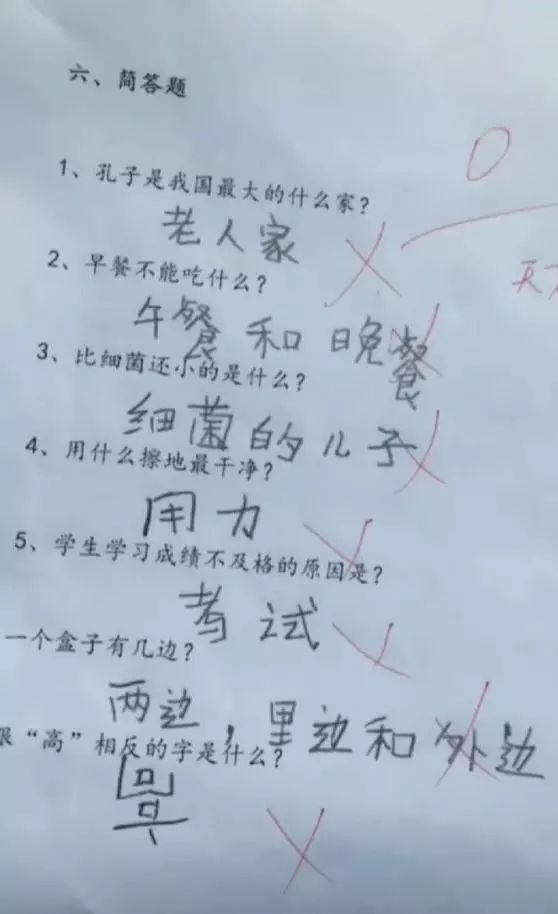 六、简答题
0
1、孔子是我国最大的什么家?
老人家
2、早餐不能吃什么?
午餐和晚餐
3、比细菌还小的是什么?
细菌的儿子
4、用什么擦地最干净?
用力
5、学生学习成绩不及格的原因是?
考试
一个盒子有几边?
两边,里边和外边
跟“高”相反的字是什么?